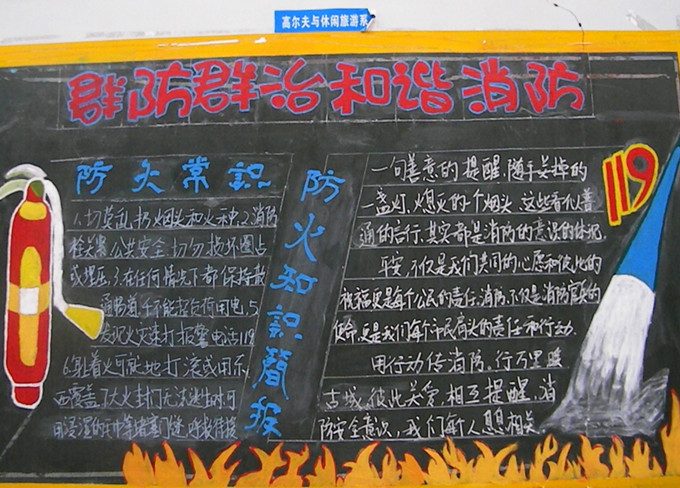 高尔夫与休闲旅游系
群防群治和谐消防
防火常识
1.切莫乱扔烟头和火种.2.消防
栓关系公共安全 切勿损坏圈占
或埋压.3.在任何情况下都保持
通畅道.4.不能超负荷用电.5.
发现火灾速打报警电话119
6.身着火可就地打滚或用
覆盖.7.大火封门无法逃生时可
用浸湿的
防火知识简报
一句善意的提醒,随手关掉的
一盏灯,熄灭的一个烟头,这些看似普
通的言行,其实都是消防的意识的体现.
平安,不仅是我们共同的心愿和彼此的
祝福更是每个公民的责任.消防,不仅是消防官兵的
使命,更是我们每个市民肩头的责任和行动.
用行动传消防,行万里路
古城,彼此关爱,相互提醒,消
防安全意识,我们每个人息息相关.
119